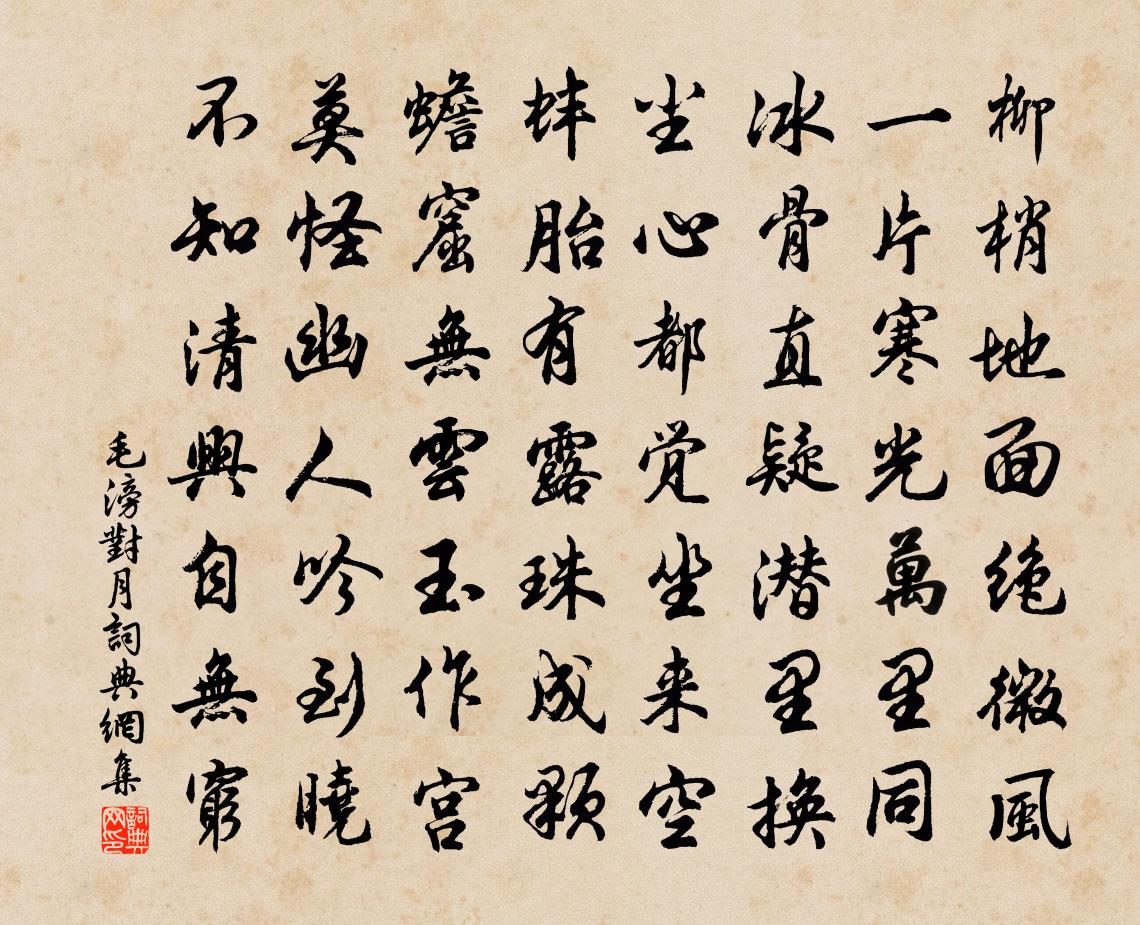 柳梢地面绝微風
一片寒光萬里同
冰骨直疑潜里換
尘心都觉坐来空
蚌胎有露珠成顆
蟾窟無雲玉作宫
莫怪幽人吟到曉
不知清興自無窮
毛滂對月詞典網集
詞典网印